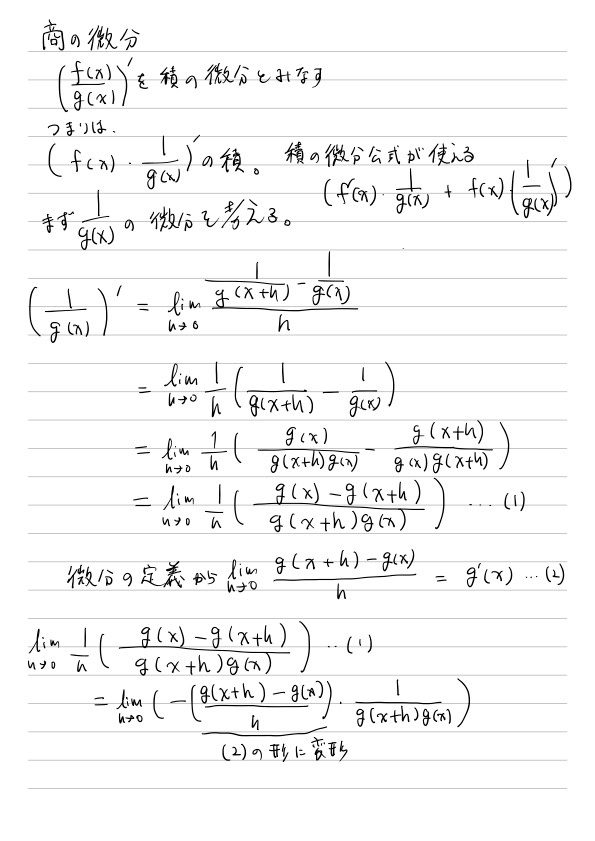 商の微分
(f(x)/g(x))' を 積の微分とみなす
つまりは、
(f(x)・1/g(x))' の積。 積の微分公式が使える
(f'(x)・1/g(x) + f(x)(1/g(x))')
まず 1/g(x) の 微分を考える。
(1/g(x))' = lim h→0 (1/g(x+h) - 1/g(x))/h
= lim h→0 1/h (1/g(x+h) - 1/g(x))
= lim h→0 1/h (g(x)/g(x+h)g(x) - g(x+h)/g(x)g(x+h))
= lim h→0 1/h (g(x)-g(x+h)/g(x+h)g(x)) … (1)
微分の定義から lim h→0 (g(x+h)-g(x))/h = g'(x) … (2)
lim h→0 1/h (g(x)-g(x+h)/g(x+h)g(x)) ‥(1)
= lim h→0 (-(g(x+h)-g(x)/h)・1/g(x+h)g(x))
(2)の形に変形